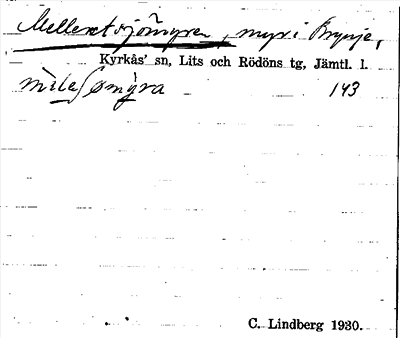 Mellertjömyren, myr i Brynje,
Kyrkås' sn, Lits och Rödöns tg, Jämtl. l.
143
C. Lindberg 1930.